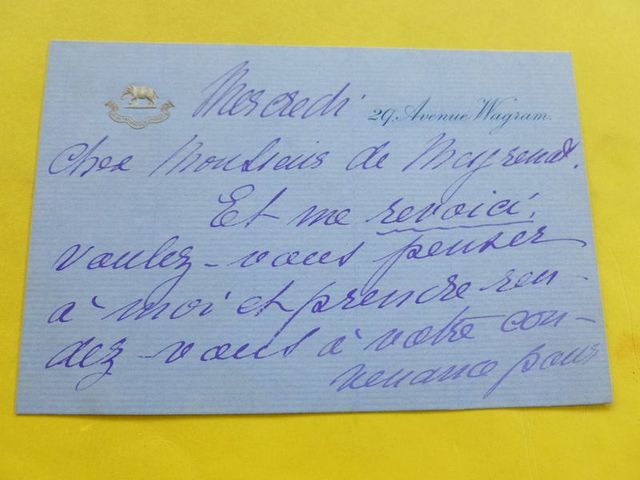 Mercredi
29, Avenue Wagram.
Cher Monsieur de
Et me revoici.
voulez-vous penser
à moi et prendre ren-
dez-vous à votre con-
venance pour